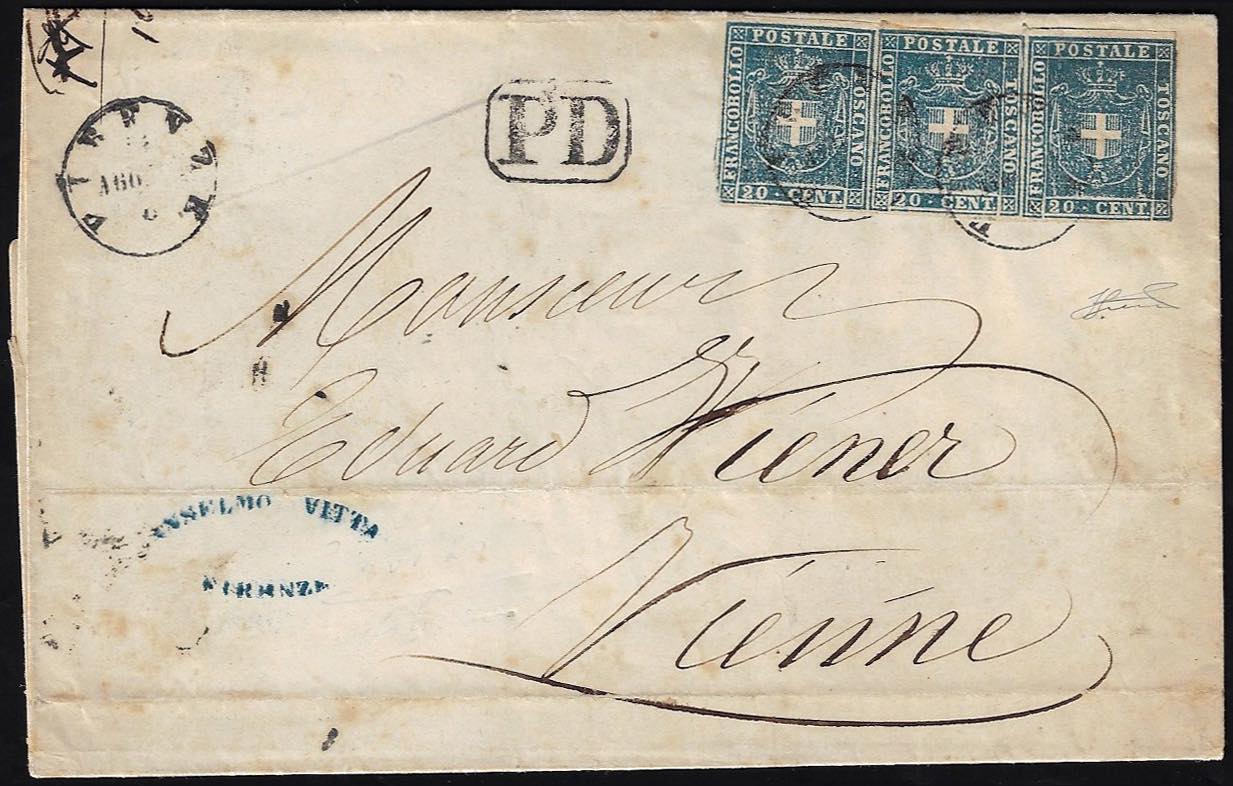 FRANCOBOLLO POSTALE TOSCANO
20 - CENT
FRANCOBOLLO POSTALE TOSCANO
20 - CENT
FRANCOBOLLO POSTALE TOSCANO
20 - CENT
PD
FIRENZE
AGO
Monsieur
Eduard Wiener
Vienne
ANSELMO VITTA
FIRENZE